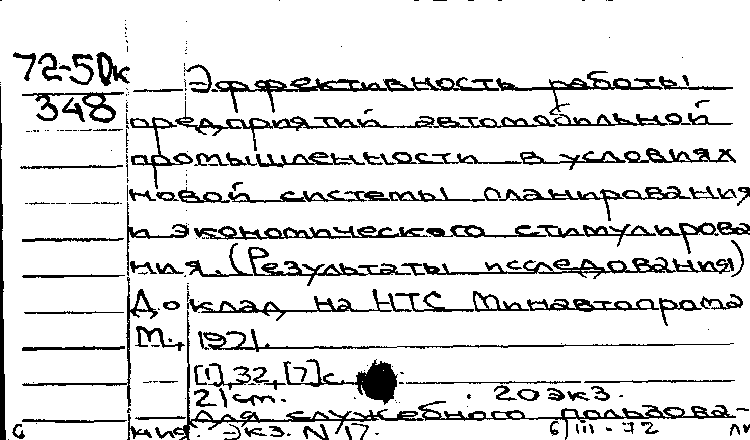 72-5Дк
348
Эффективность работы
предприятий автомобильной
промышленности в условиях
новой системы планирования
и экономического стимулирова
ния. (Результаты исследования)
Доклад на НТС Минавтопрома
М., 1971.
[1], 32, [7] с.
21 см. 20 экз.
Для служебного пользова-
ния. Экз. N 17. 6/III-72